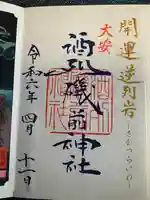 開運逆列岩
～さかつらいわ～
大安
酒列磯前神社
令和六年 四月 十一日